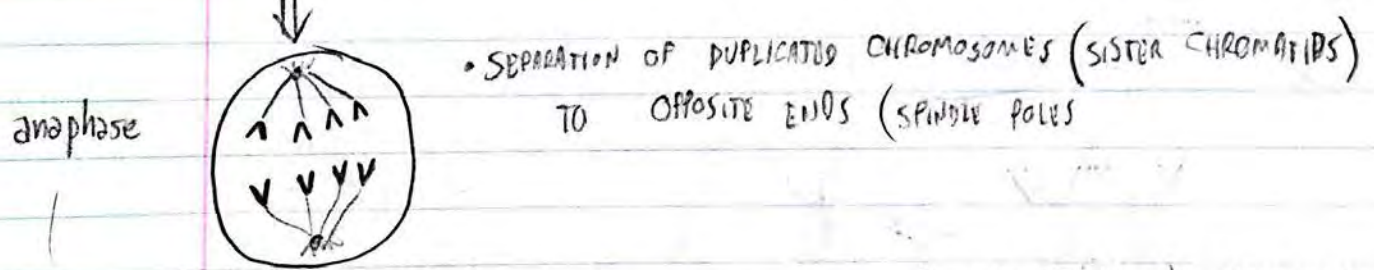 • SEPARATION OF DUPLICATED CHROMOSOMES (SISTER CHROMATIDS)
TO OPPOSITE ENDS (SPINDLE POLES
anaphase